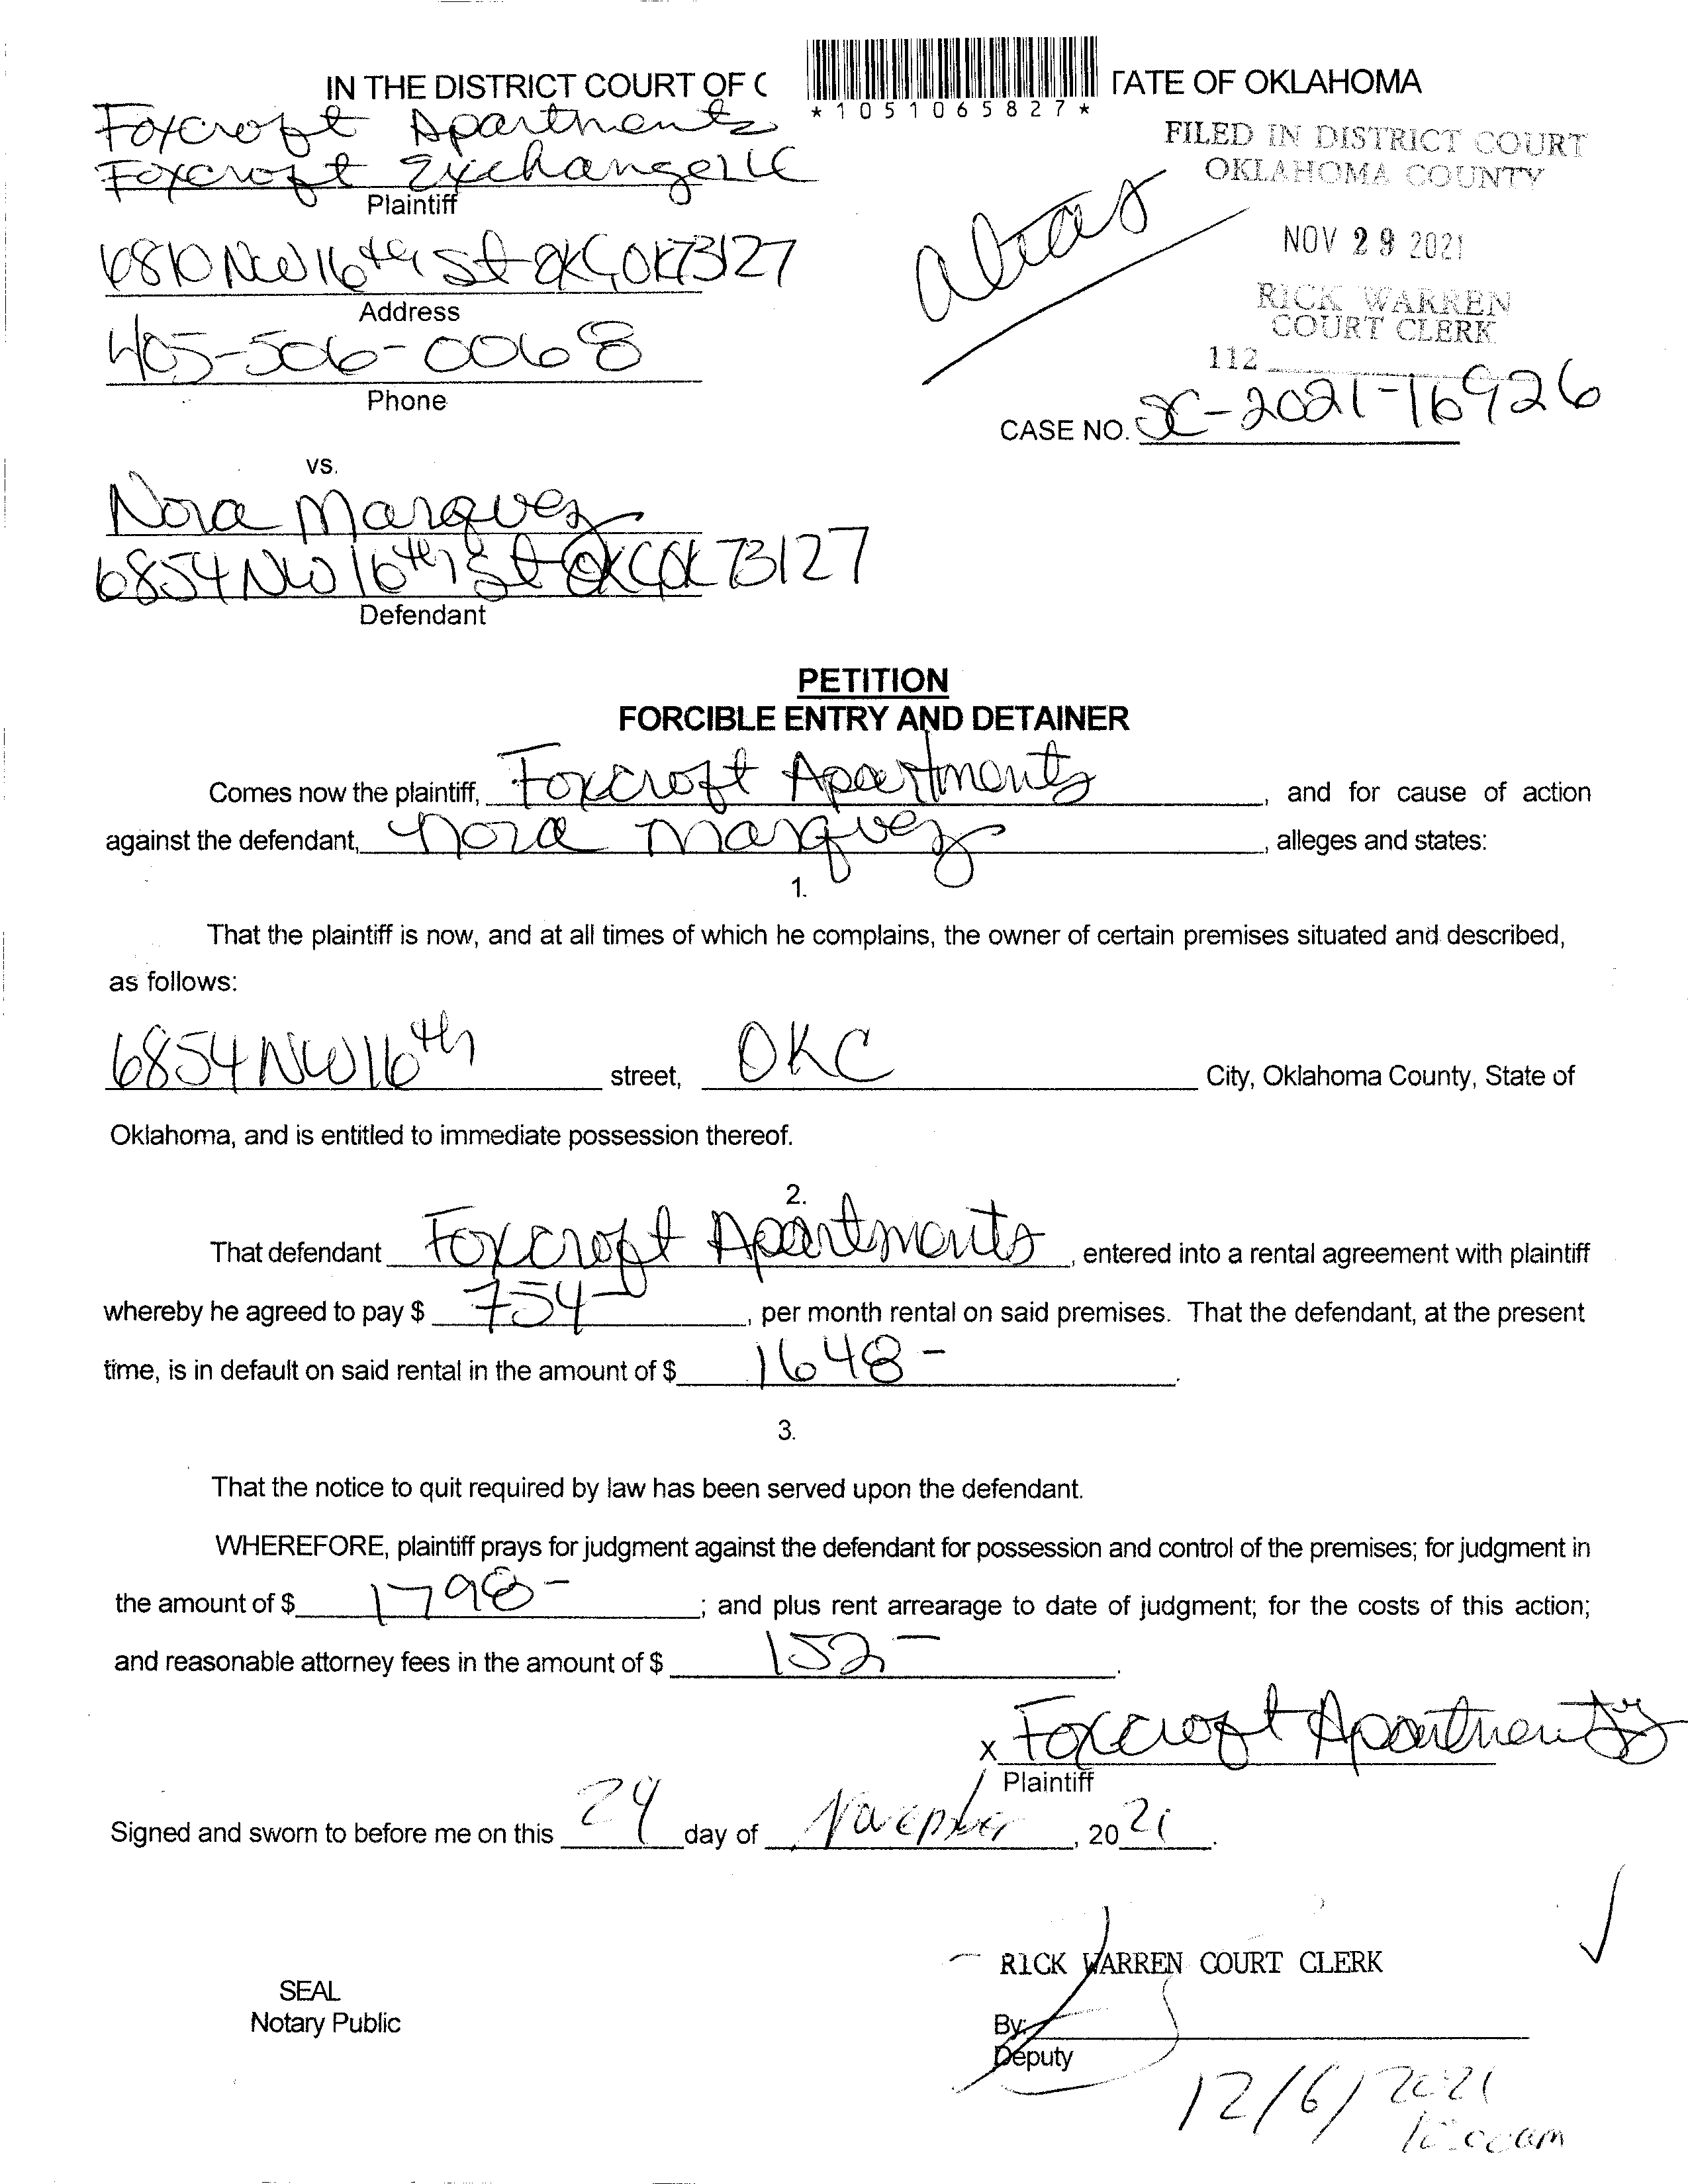 IN THE DISTRICT COURT OF C
TATE OF OKLAHOMA
*1051065827*
Foxcroft Apartments
Foxcroft Exchange LLC
Plaintiff
6810 NW 16th St OKC, OK 73127
Address
405-506-0068
Phone
alias
FILED IN DISTRICT COURT
OKLAHOMA COUNTY
NOV 29 2021
RICK WARREN
COURT CLERK
112
CASE NO. SC-2021-16926
vs.
Nora Marquez
6854 NW 16th St OKC, OK 73127
Defendant
PETITION
FORCIBLE ENTRY AND DETAINER
Comes now the plaintiff, Foxcroft Apartments, and for cause of action
against the defendant, Nora Marquez, alleges and states:
1.
That the plaintiff is now, and at all times of which he complains, the owner of certain premises situated and described,
as follows:
6854 NW 16th street, OKC City, Oklahoma County, State of
Oklahoma, and is entitled to immediate possession thereof.
2.
That defendant Foxcroft Apartments, entered into a rental agreement with plaintiff
whereby he agreed to pay $ 754-, per month rental on said premises. That the defendant, at the present
time, is in default on said rental in the amount of $ 1648-.
3.
That the notice to quit required by law has been served upon the defendant.
WHEREFORE, plaintiff prays for judgment against the defendant for possession and control of the premises; for judgment in
the amount of $ 1798-; and plus rent arrearage to date of judgment; for the costs of this action;
and reasonable attorney fees in the amount of $ 152-.
x Foxcroft Apartments
Plaintiff
Signed and sworn to before me on this 24 day of November, 2021.
RICK WARREN COURT CLERK
SEAL
Notary Public
By:
Deputy
12/6/2021
10:00am